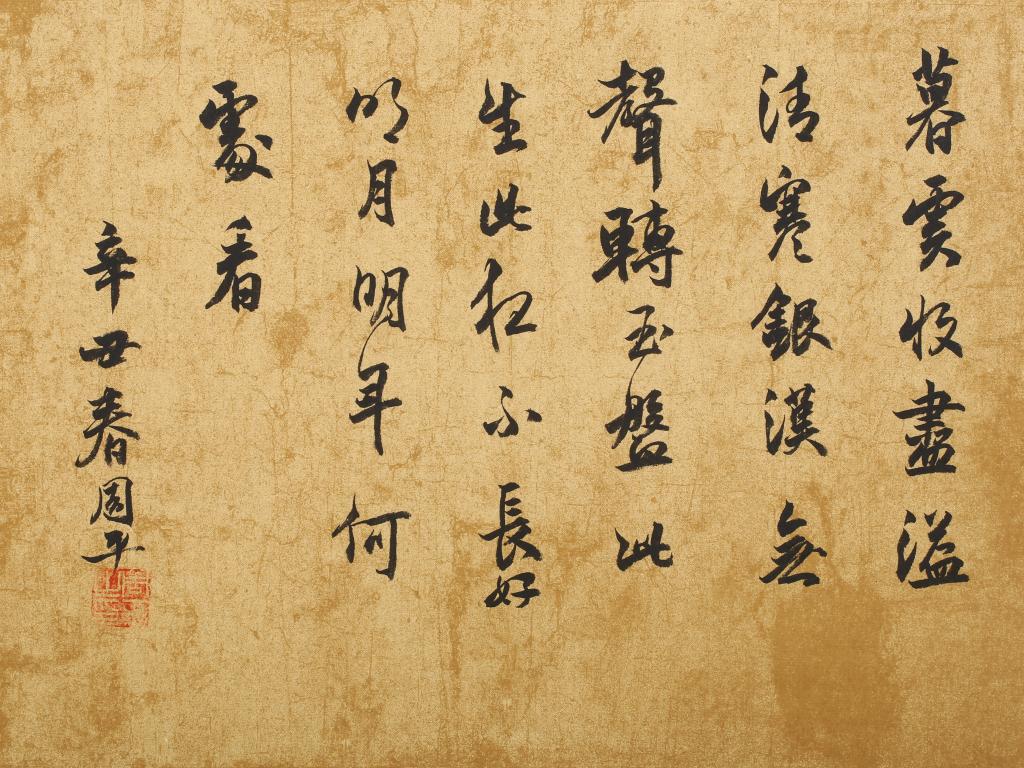 暮雲收盡溢
清寒銀漢無
聲轉玉盤此
生此夜不長好
明月明年何
處看
辛丑春周平